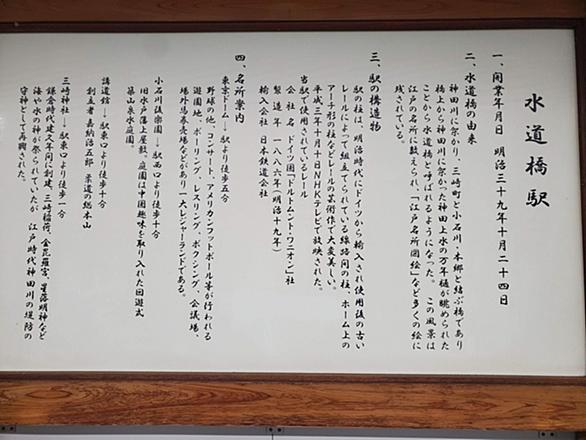 水道橋駅
一、開業年月日　明治三十九年十月二十四日
二、水道橋の由来
神田川に架かり、三崎町と小石川・本郷と結ぶ橋であり
橋上から神田川に架かった神田上水の万年樋が眺められた
ことから水道橋と呼ばれるようになった。この風景は
江戸の名所に数えられ、「江戸名所図絵」など多くの絵に
残されている。
三、駅の構造物
駅の柱は、明治時代にドイツから輸入され使用後の古い
レールによって組立てられている線路間の柱、ホーム上の
アーチ形の柱などレールの芸術作で大変美しい。
平成三年十月十日NHKテレビで放映された。
当駅で使用されているレール
会社名　ドイツ国「ドルトムント・ワニオン」社
製造年　一八八六年(明治十九年)
輸入会社　日本鉄道会社
四、名所案内
東京ドーム→駅より徒歩五分
野球の他、コンサート、アメリカンフットボール等が行われる
遊園地、ボーリング、レスリング、ボクシング、会議場、
場外馬券売場などがあり一大レジャーランドである。
小石川後楽園→駅西口より徒歩十分
旧水戸藩上屋敷、庭園は中国趣味を取り入れた回遊式
築山泉水庭園。
講道館→駅東口より徒歩十分
創立者嘉納治五郎　柔道の総本山
三崎神社→駅東口より徒歩一分
鎌倉時代建久年間に創建、三崎稲荷、金毘羅宮、星海明神など
海や水の神が祭られていたが　江戸時代神田川の堤防の
守神として再興された。